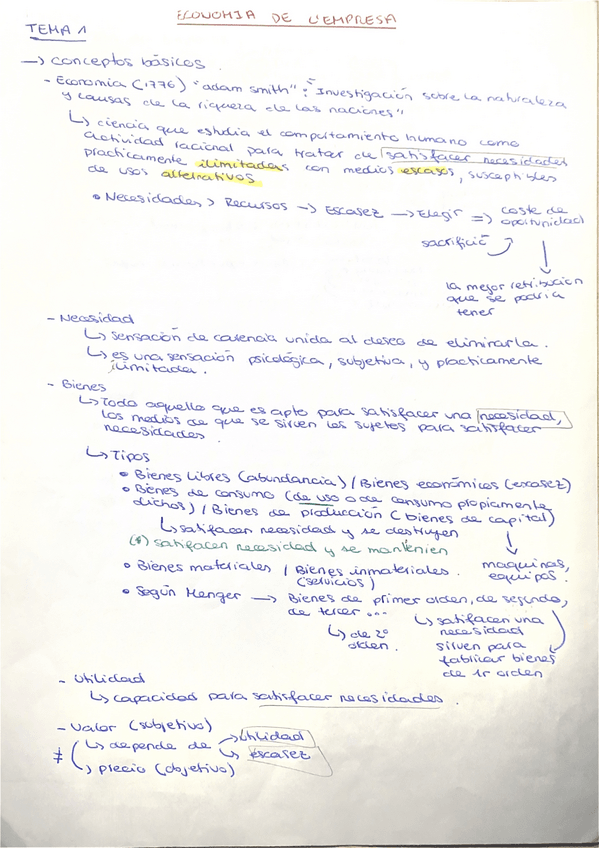 ECONOMIA DE L'EMPRESA
TEMA 1
→ conceptos básicos.
- Economía (1776) "adam smith": "Investigación sobre la naturaleza
y causas de la riqueza de las naciones"
↳ ciencia que estudia el comportamiento humano como
actividad racional para tratar de satisfacer necesidades
practicamente ilimitadas con medios escasos, susceptibles
de usos alternativos
• Necesidades > Recursos → Escasez → Elegir => coste de
oportunidad
sacrificio
la mejor retribución
que se podría
tener
- Necesidad
↳ Sensación de carencia unida al deseo de eliminarla.
↳ es una sensación psicológica, subjetiva, y practicamente
ilimitada.
- Bienes
↳ Todo aquello que es apto para satisfacer una necesidad,
los medios de que se sirven los sujetos para satisfacer
necesidades.
↳ Tipos
• Bienes Libres (abundancia) / Bienes económicos (escasez)
• Bienes de consumo (de uso o de consumo propiamente
dichos) / Bienes de producción (bienes de capital)
↳ satifacen necesidad y se destruyen
(*) satifacen necesidad y se mantienen
maquinas,
equipos.
• Bienes materiales / Bienes inmateriales.
(servicios)
• Según Menger → Bienes de primer orden, de segundo,
de tercer ...
↳ de 2º
orden.
↳ satifacen una
necesidad
sirven para
fabricar bienes
de 1r orden
- Utilidad
↳ capacidad para satisfacer necesidades.
- Valor (subjetivo)
↳ depende de → Utilidad
↳ escasez
≠
↳ precio (objetivo)